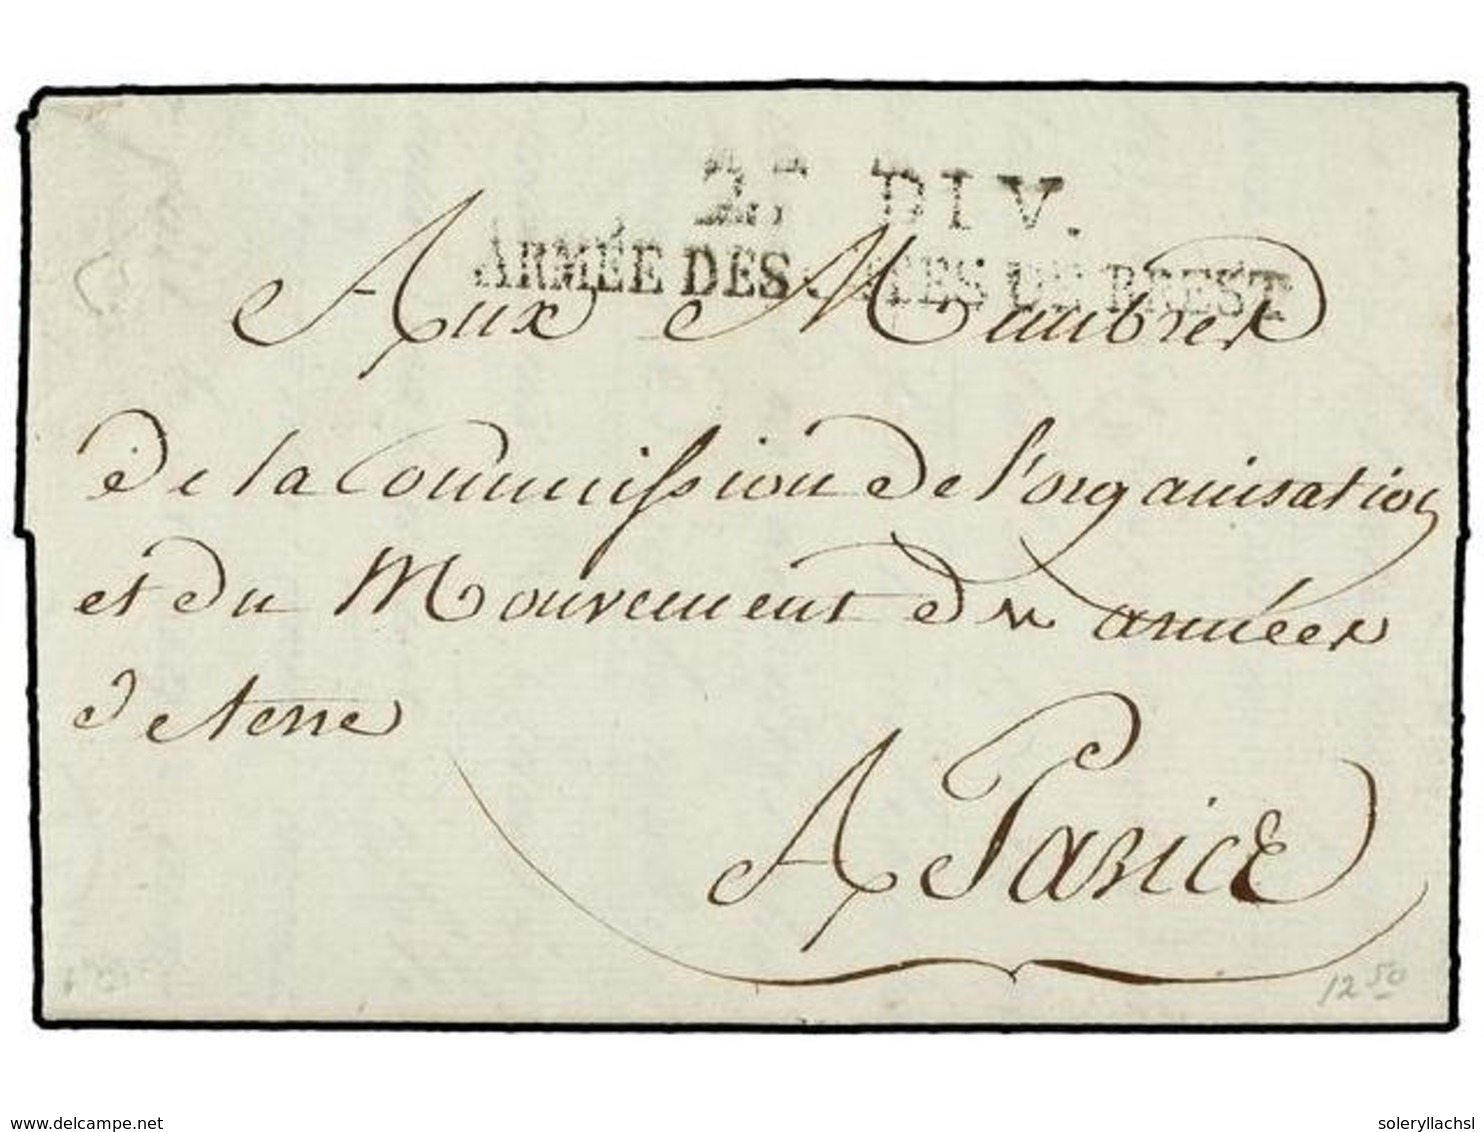 2.e DIV.
ARMÉE DES CÔTES DE BREST
Aux Membres
de la Commission de l'organisation
et du Mouvement des armées
de terre
A Paris
12 50
www.delcampe.net
soleryllachsl